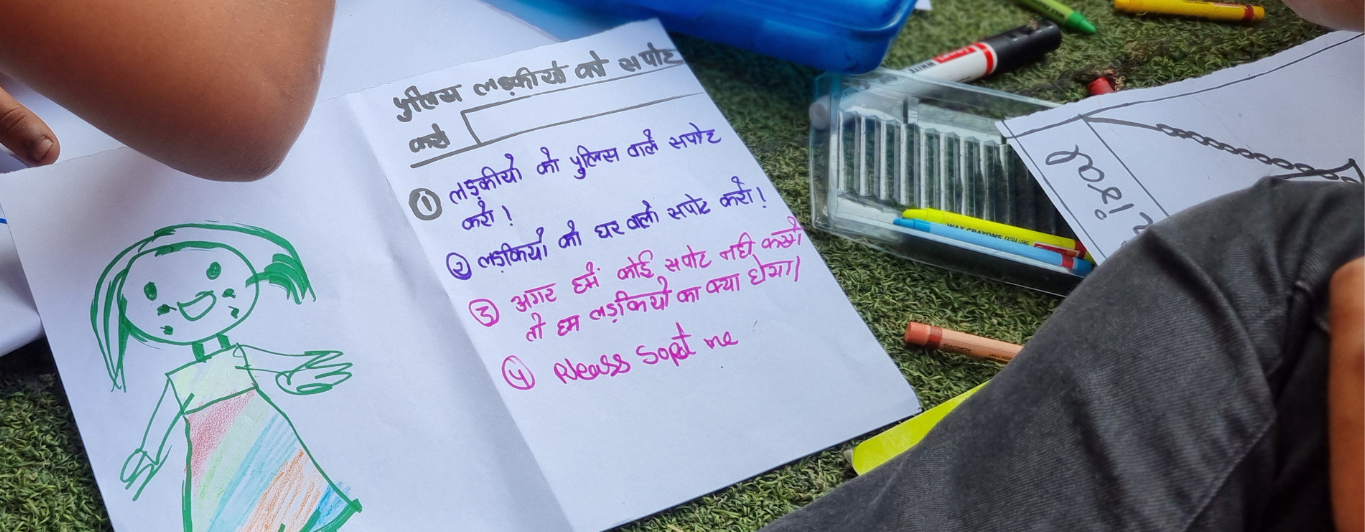 पुलिस लड़कीयों को सपोट
करो
① लड़कीयो को पुलिस वाले सपोट
करो !
② लड़कियों को घर वाले सपोट करो !
③ अगर हमें कोई सपोट नही करेंगे
तो हम लड़कियों का क्या होगा।
④ Pleass Sopot me
WAX CRAYONS